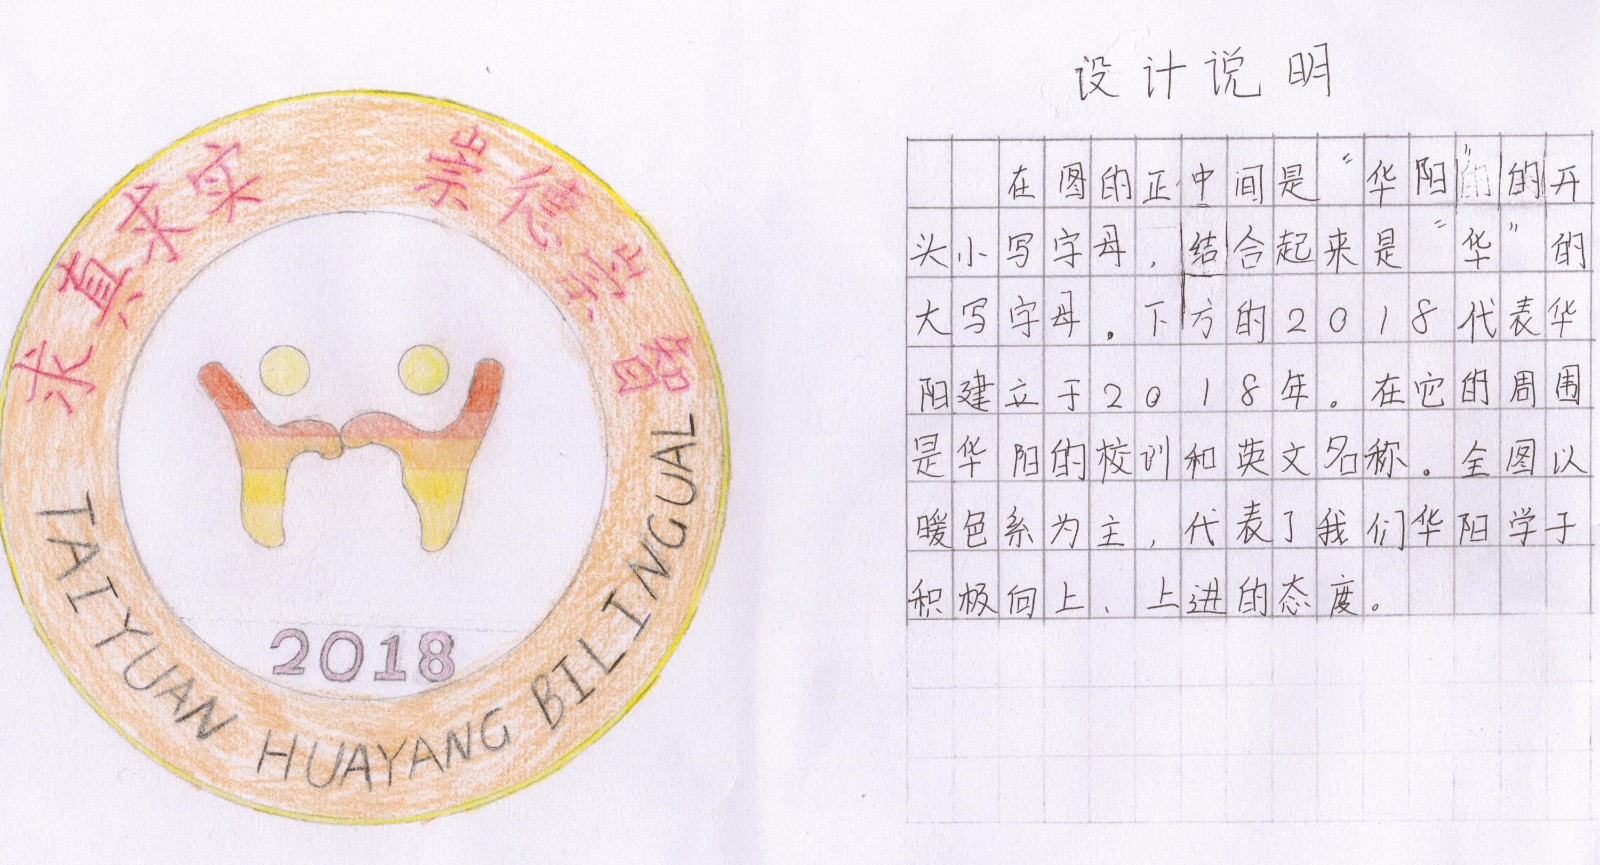 求真求实 崇德崇智
TAIYUAN HUAYANG BILINGUAL
2018
设计说明
在图的正中间是“华阳”的开
头小写字母，结合起来是“华”的
大写字母。下方的2018代表华
阳建立于2018年。在它的周围
是华阳的校训和英文名称。全图以
暖色系为主，代表了我们华阳学子
积极向上、上进的态度。